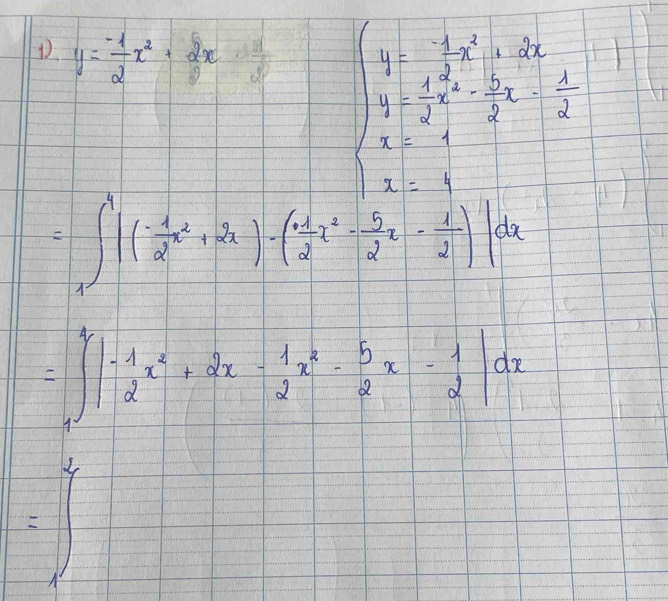 1). y = -1/2 x² + 2x
{ y = -1/2 x² + 2x
y = 1/2 x² - 5/2 x - 1/2
x = 1
x = 4
= ∫₁⁴ | (-1/2 x² + 2x) - (1/2 x² - 5/2 x - 1/2) | dx
= ∫₁⁴ | -1/2 x² + 2x - 1/2 x² - 5/2 x - 1/2 | dx
= ∫₁²